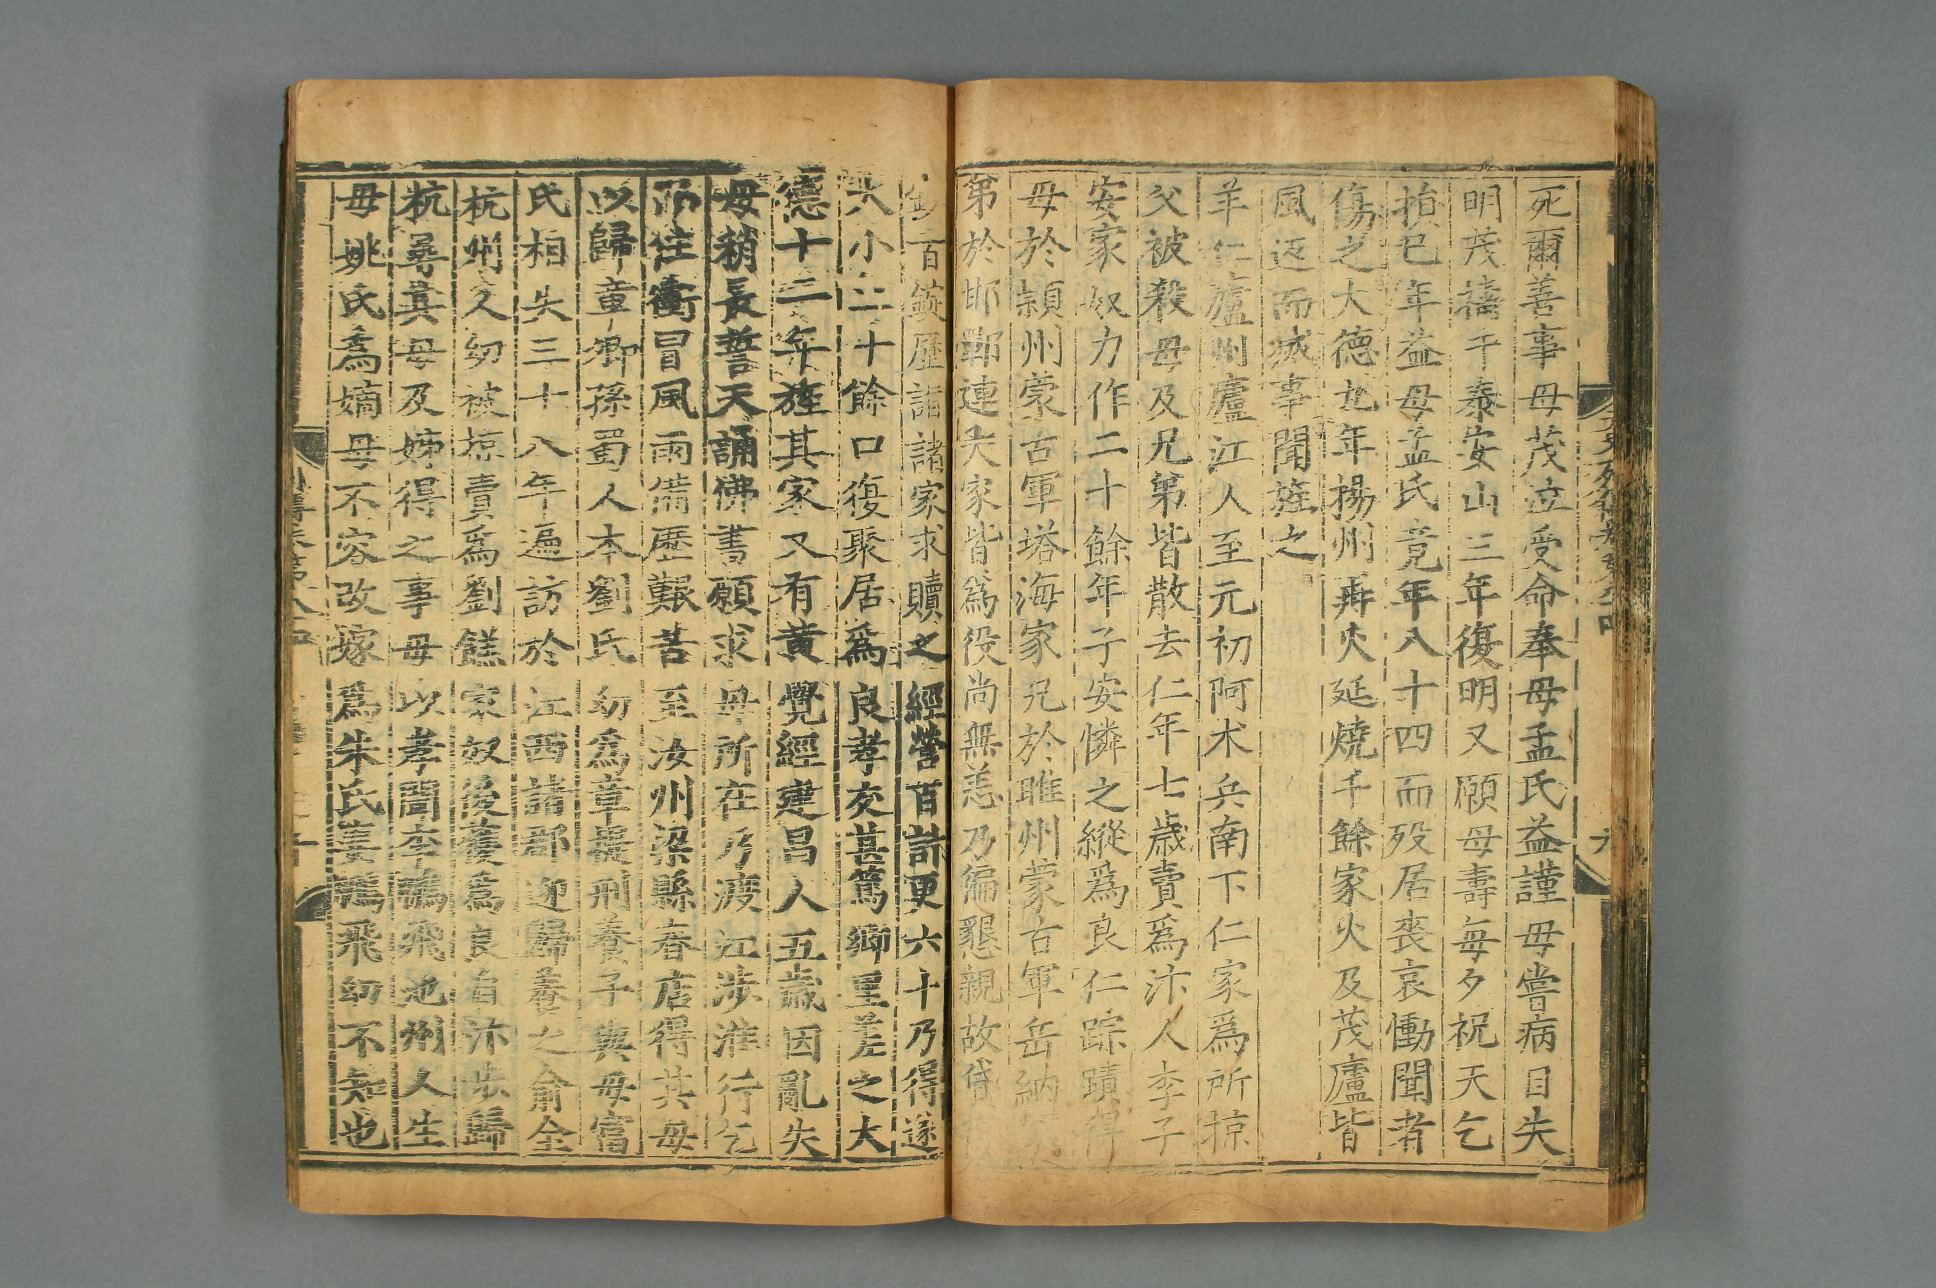 死爾善事母茂泣受命奉母孟氏益謹母嘗病目失
明茂禱于泰安山三年復明又願母壽每夕祝天乞
損已年益母孟氏竟年八十四而殁居喪哀慟聞者
傷之大德九年揚州再火延燒千餘家火及茂廬皆
風返而滅事聞旌之
羊仁廬州廬江人至元初阿术兵南下仁家爲所掠
父被殺母及兄第皆散去仁年七歲賣爲汴人李子
安家奴力作二十餘年子安憐之縱爲良仁踪蹟得
母於頴州蒙古軍塔海家兄於睢州蒙古軍岳納家
第於邯鄲連大家皆爲役尚無恙乃徧懇親故貸
鈔百錠歷詣諸家求贖之經營百計更六十乃得遂
大小二十餘口復聚居爲良孝友甚篤鄉里差之大
德十二年旌其家又有黄覺經建昌人五歲因亂失
母稍長誓天誦佛書願求母所在乃渡江涉淮行乞
而徃衝冒風雨備歷艱苦至汝州梁縣春店得其母
以歸章卿孫蜀人本劉氏幼爲章提刑養子與母富
氏相失三十八年遍訪於江西諸郡迎歸養之俞全
杭州人幼被掠賣爲劉饒家奴後獲爲良自汴步歸
杭尋其母及姊得之事母以孝聞李鵬飛池州人生
母姚氏爲嫡母不容改嫁爲朱氏妻鵬飛幼不知也